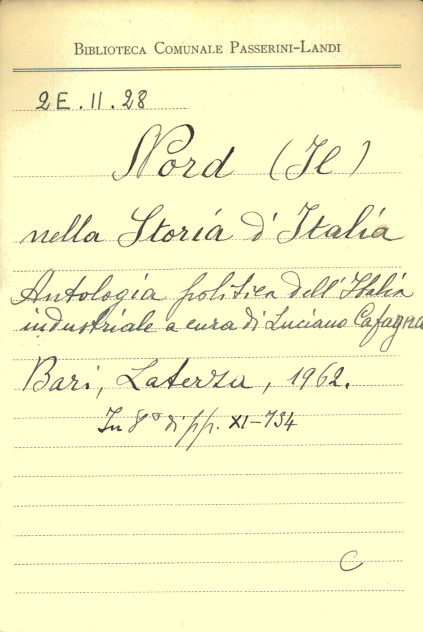 BIBLIOTECA COMUNALE PASSERINI-LANDI
2E.11.28
Nord (Il)
nella Storia d'Italia
Antologia politica dell'Italia
industriale a cura di Luciano Cafagna
Bari, Laterza, 1962.
In 8° di pp. XI-734
C